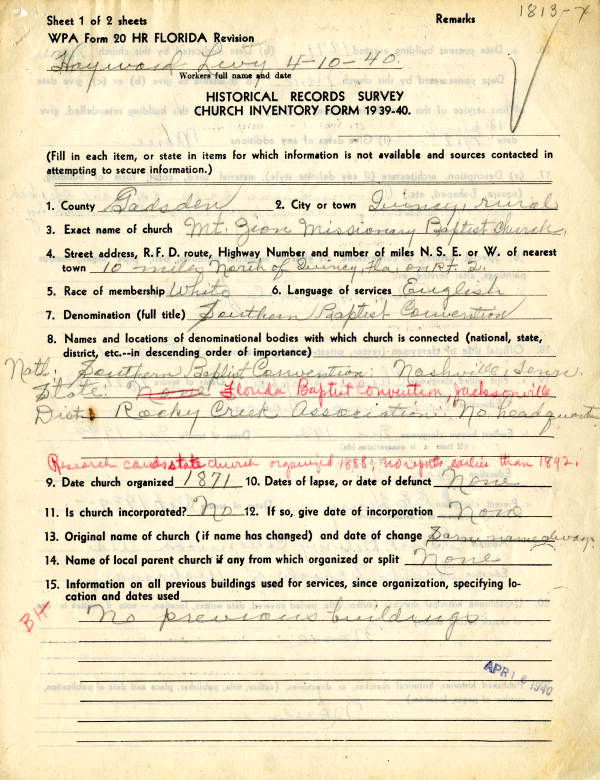 Sheet 1 of 2 sheets
Remarks
1813-X
WPA Form 20 HR FLORIDA Revision
Hayward Levy 4-10-40
Workers full name and date
HISTORICAL RECORDS SURVEY
CHURCH INVENTORY FORM 1939-40.
(Fill in each item, or state in items for which information is not available and sources contacted in
attempting to secure information.)
1. County Gadsden 2. City or town Quincy, rural
3. Exact name of church Mt. Zion Missionary Baptist Church.
4. Street address, R. F. D. route, Highway Number and number of miles N. S. E. or W. of nearest
town 10 miles North of Quincy, Fla. on R.F. 2.
5. Race of membership White 6. Language of services English
7. Denomination (full title) Southern Baptist Convention
8. Names and locations of denominational bodies with which church is connected (national, state,
district, etc.--in descending order of importance)
Natl. Southern Baptist Convention: Nashville, Tenn.
State: None Florida Baptist Convention, Jacksonville
Dist: Rocky Creek Association: No headquarters
Research cards state church organized 1888; no reports earlier than 1892.
9. Date church organized 1871 10. Dates of lapse, or date of defunct None
11. Is church incorporated? No 12. If so, give date of incorporation None
13. Original name of church (if name has changed) and date of change Same name always.
14. Name of local parent church if any from which organized or split None
15. Information on all previous buildings used for services, since organization, specifying lo-
cation and dates used
BH
No previous buildings
APR 16 1940